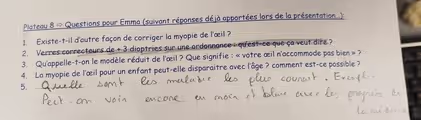 Plateau 8 ⇨ Questions pour Emma (suivant réponses déjà apportées lors de la présentation..):
1. Existe-t-il d'autre façon de corriger la myopie de l'œil ?
2. Verres correcteurs de + 3 dioptries sur une ordonnance : qu'est-ce que ça veut dire ?
3. Qu'appelle-t-on le modèle réduit de l'œil ? Que signifie : « votre œil n'accommode pas bien » ?
4. La myopie de l'œil pour un enfant peut-elle disparaitre avec l'âge ? comment est-ce possible ?
5. Quelle sont les maladie les plus courant. Exempl.
Peut-on voir encore en noir et blanc avec les progrès de
la